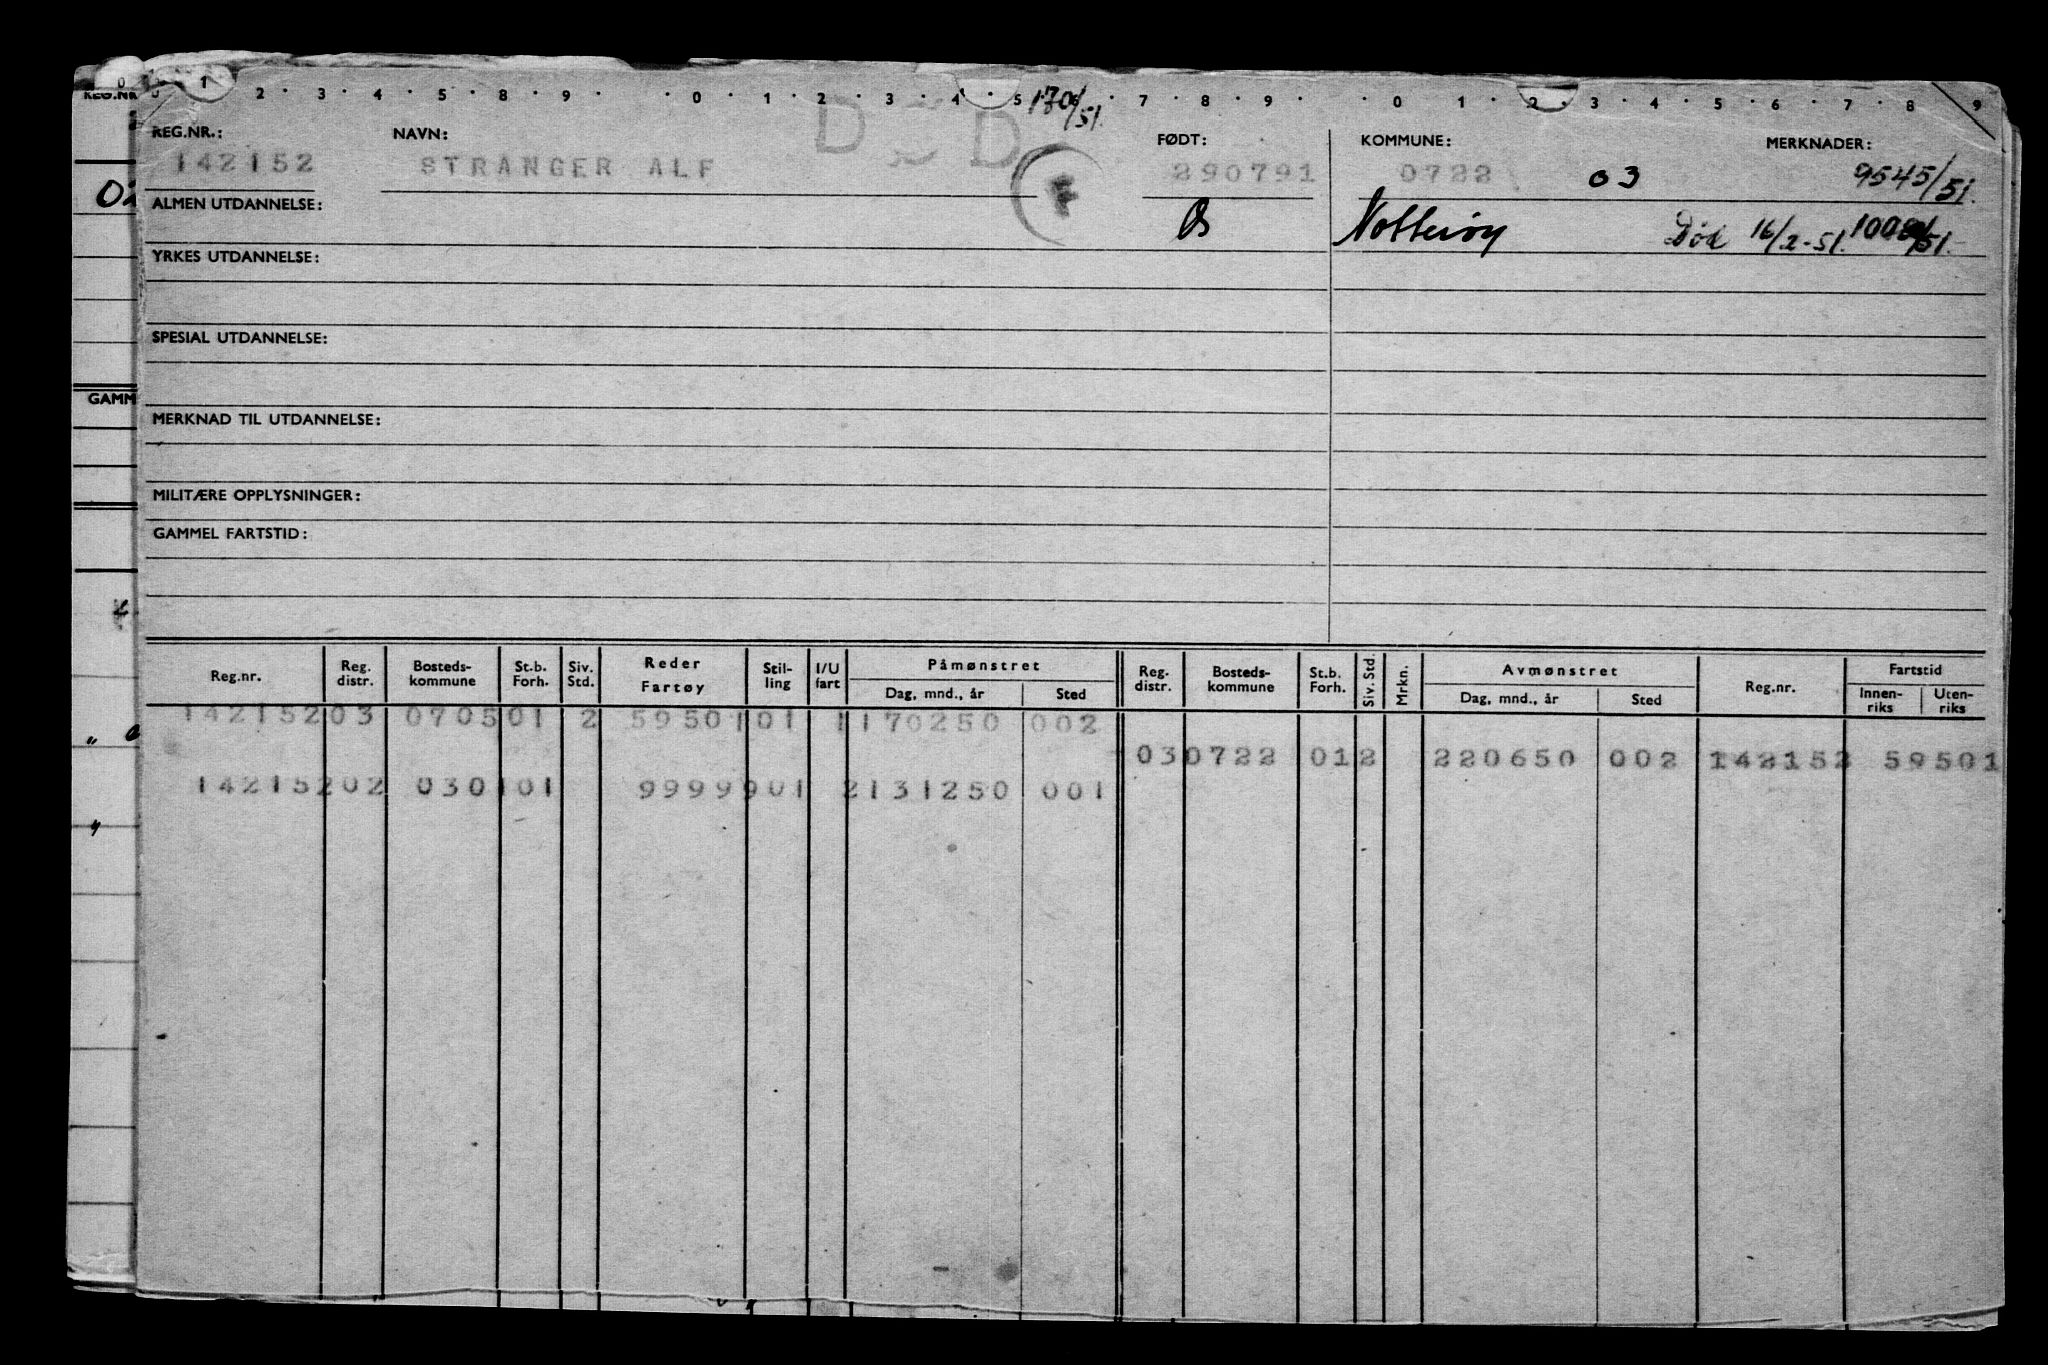 0 1 2 3 4 5 8 9 0 1 2 3 4 5 6 7 8 9 0 1 2 3 4 5 6 7 8 9
REG.NR.: NAVN: DØD 170/51. FØDT: KOMMUNE: MERKNADER:
142152 STRANGER ALF F 290791 0722 03 9545/51.
ALMEN UTDANNELSE: Nøtterøy Død 16/2-51.
YRKES UTDANNELSE:
SPESIAL UTDANNELSE:
MERKNAD TIL UTDANNELSE:
MILITÆRE OPPLYSNINGER:
GAMMEL FARTSTID:
Reg.nr. Reg. distr. Bosteds-kommune St.b. Forh. Siv. Std. Reder Fartøy Stil-ling I/U fart Påmønstret Dag, mnd., år Sted Reg. distr. Bosteds-kommune St.b. Forh. Siv. Std. Mrkn. Avmønstret Dag, mnd., år Sted Reg.nr. Fartstid Innen-riks Uten-riks
142152 03 0705 01 2 59501 01 1 170250 002
03 0722 01 2 220650 002 142152 59501
142152 02 0301 01 99999 01 2 131250 001
REG.NR
GAMM